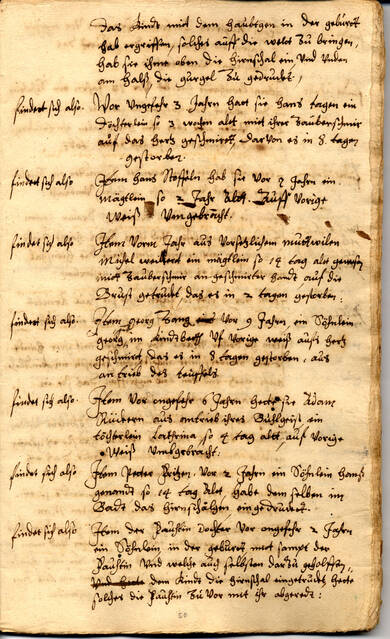 das Kindt mit dem haubtgen in der geburtt
hab ergriffen, solches auff die welt zu bringen,
hab sie ihme oben die hirnschal ein Und Unden
am halß, die gurgel zu gedrückt,
findet sich also. Vor Ungefehr 3 Jahrn hatt sie hans tagen ein
döchterlein so 3 wochen altt mit ihrer zauberschmir
auf das hertz geschmirtt, darvon es in 8 tagen
gestorben.
findet sich also Item hans Stoffeln hab sie vor 8 Jahrn ein
mägtlein so 2 Jahr altt. Auff Vorige
Weiß Umgebracht.
findet sich also Item Vorm Jahr aus Vorsetzlichem muthwilen
Michel ein mägtlein so 14 tag alt gewesen
mitt zauberschmir angeschmirter handt auf die
Brust getruckt das es in 2 tagen gestorben:
findet sich also. Item georg vor 9 Jahrn, ein Söhnlein
georg, im Kindtbett Uf Vorige weiß aufs hertz
geschmirt, das es in 8 tagen gestorben, aus
antrieb des teuffels.
findet sich also Item Vor ongefehr 6 Jahrn hette sie Adam
aus antrieb ihres Buhlgeist ein
töchterlein Cathrina, so 4 tag altt, auf Vorige
Weiß Umbgebracht.
findet sich also Item Petter, vor 2 Jahrn ein Söhnlein hanß
genandt so 14 tag Alt, habe dem selben im
Badt das hirnschälgen eingedruckt.
findet sich also Item der dochter Vor ongefehr 2 Jahrn
ein Söhnlein in der geburtt, mit sampt der
Und welche auch selbsten darzu geholffen,
Und hette dem Kindt die hirnschal eingetruckt hette
solches die zu Vor mit ihr abgeredt: